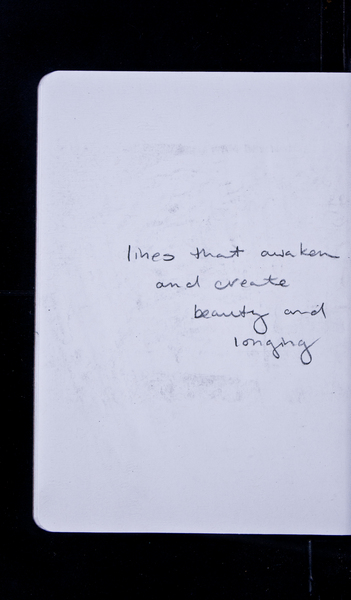 lines that awaken
and create
beauty and
longing